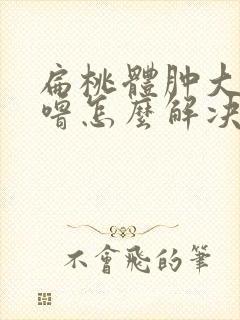 扁桃體肿大
嘒怎麼解决
不會飛的筆